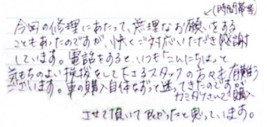 (時間等)
今回の修理にあたって、無理なお願いをする
こともあったのですが、快くご対応いただき感謝
しています。電話をすると、いつも「こんにちは」って
気持ちのよい挨拶をして下さるスタッフの方々も有難う
ございます。車の購入自体なって迷ってきたのですが
購入
させて頂いて良かったと思っています。